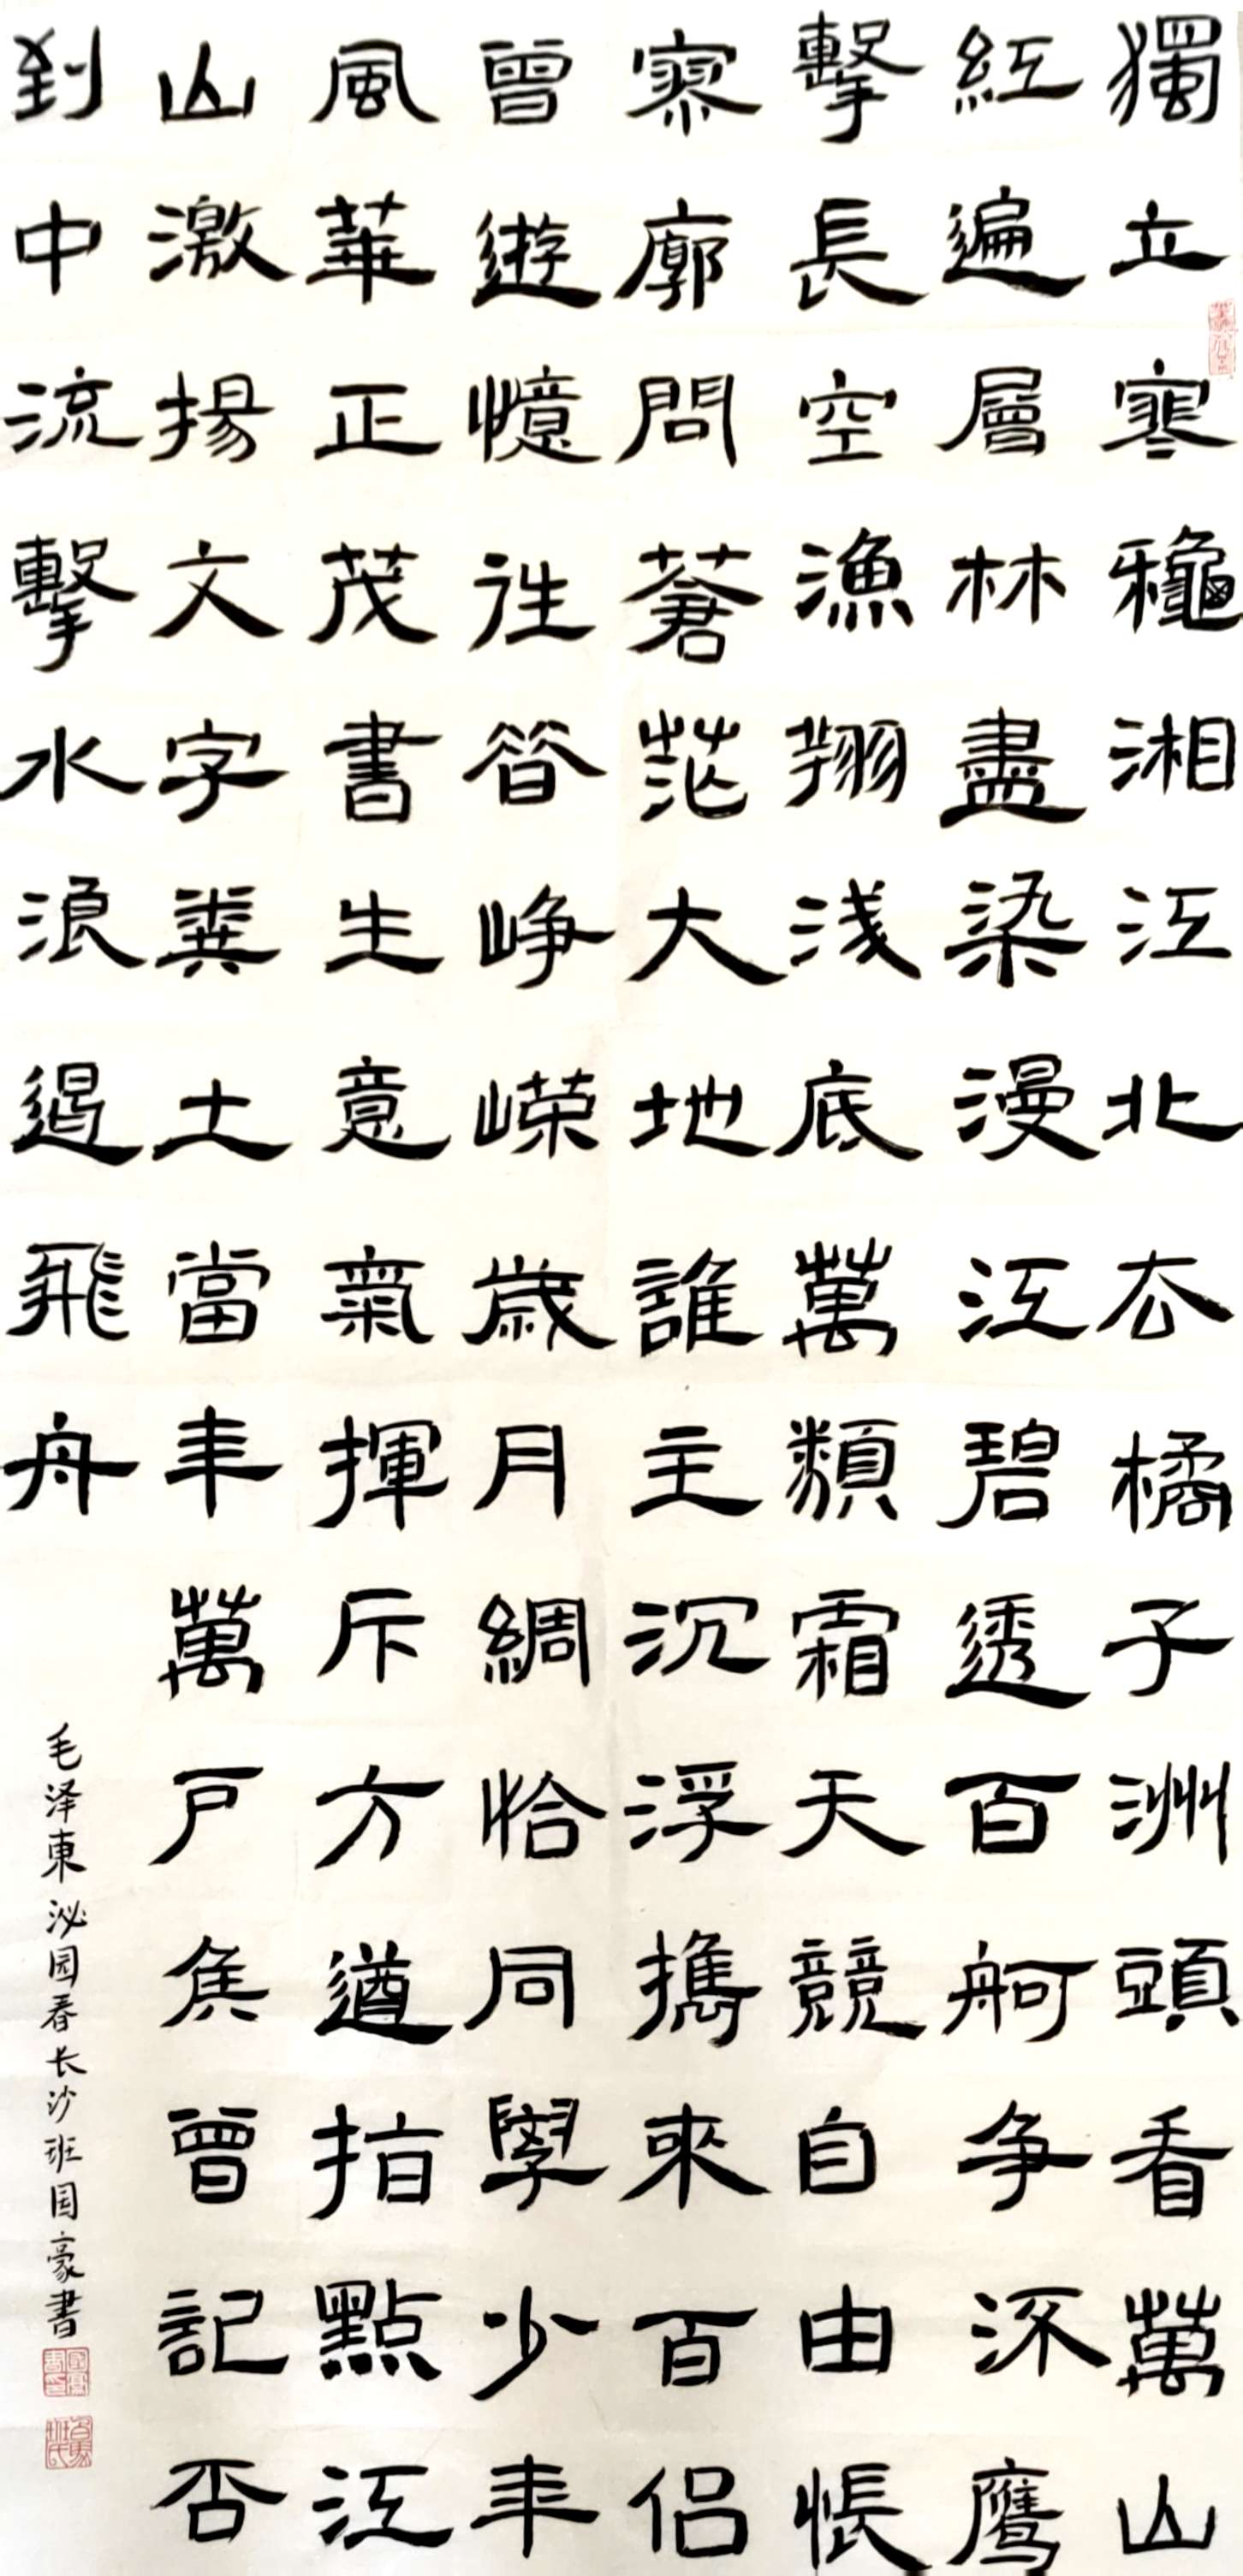 獨立寒龝湘江北去橘子洲頭看萬山
紅遍層林盡染漫江碧透百舸争流鷹
擊長空漁翔浅底萬類霜天競自由悵
寥廓問蒼茫大地誰主沉浮攜來百侣
曾遊憶往昔峥嵘歲月綢恰同學少年
風華正茂書生意氣揮斥方遒指點江
山激揚文字糞土當年萬户侯曾記否
到中流擊水浪遏飛舟
毛泽東沁园春长沙班国豪書